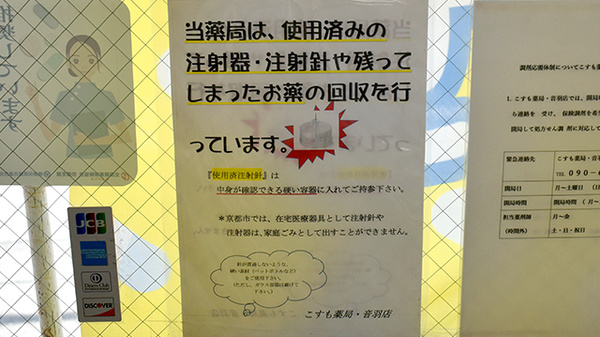 当薬局は、使用済みの
注射器・注射針や残って
しまったお薬の回収を行
っています。
『使用済注射針』は
中身が確認できる硬い容器に入れてご持参下さい。
＊京都市では、在宅医療器具として注射針や
注射器は、家庭ごみとして出すことができません。
針が貫通しないような、
硬い素材（ペットボトルなど）
をご使用下さい。
（ただし、ガラス容器は避けて
下さい。）
こすも薬局・音羽店
JCB
AMERICAN EXPRESS
Diners Club
INTERNATIONAL
DISCOVER
調剤応需体制についてこすも薬
1. こすも薬局・音羽店では、開局
ら連絡を 受け、保険調剤を希
開局して処方せん調 剤に対応して
緊急連絡先 こすも薬局・音羽
TEL 090-6
開局日 月～土曜日（日
開局時間 開局時間（ 月～
担当薬剤師 月～金
（時間外） 土・日・祝日